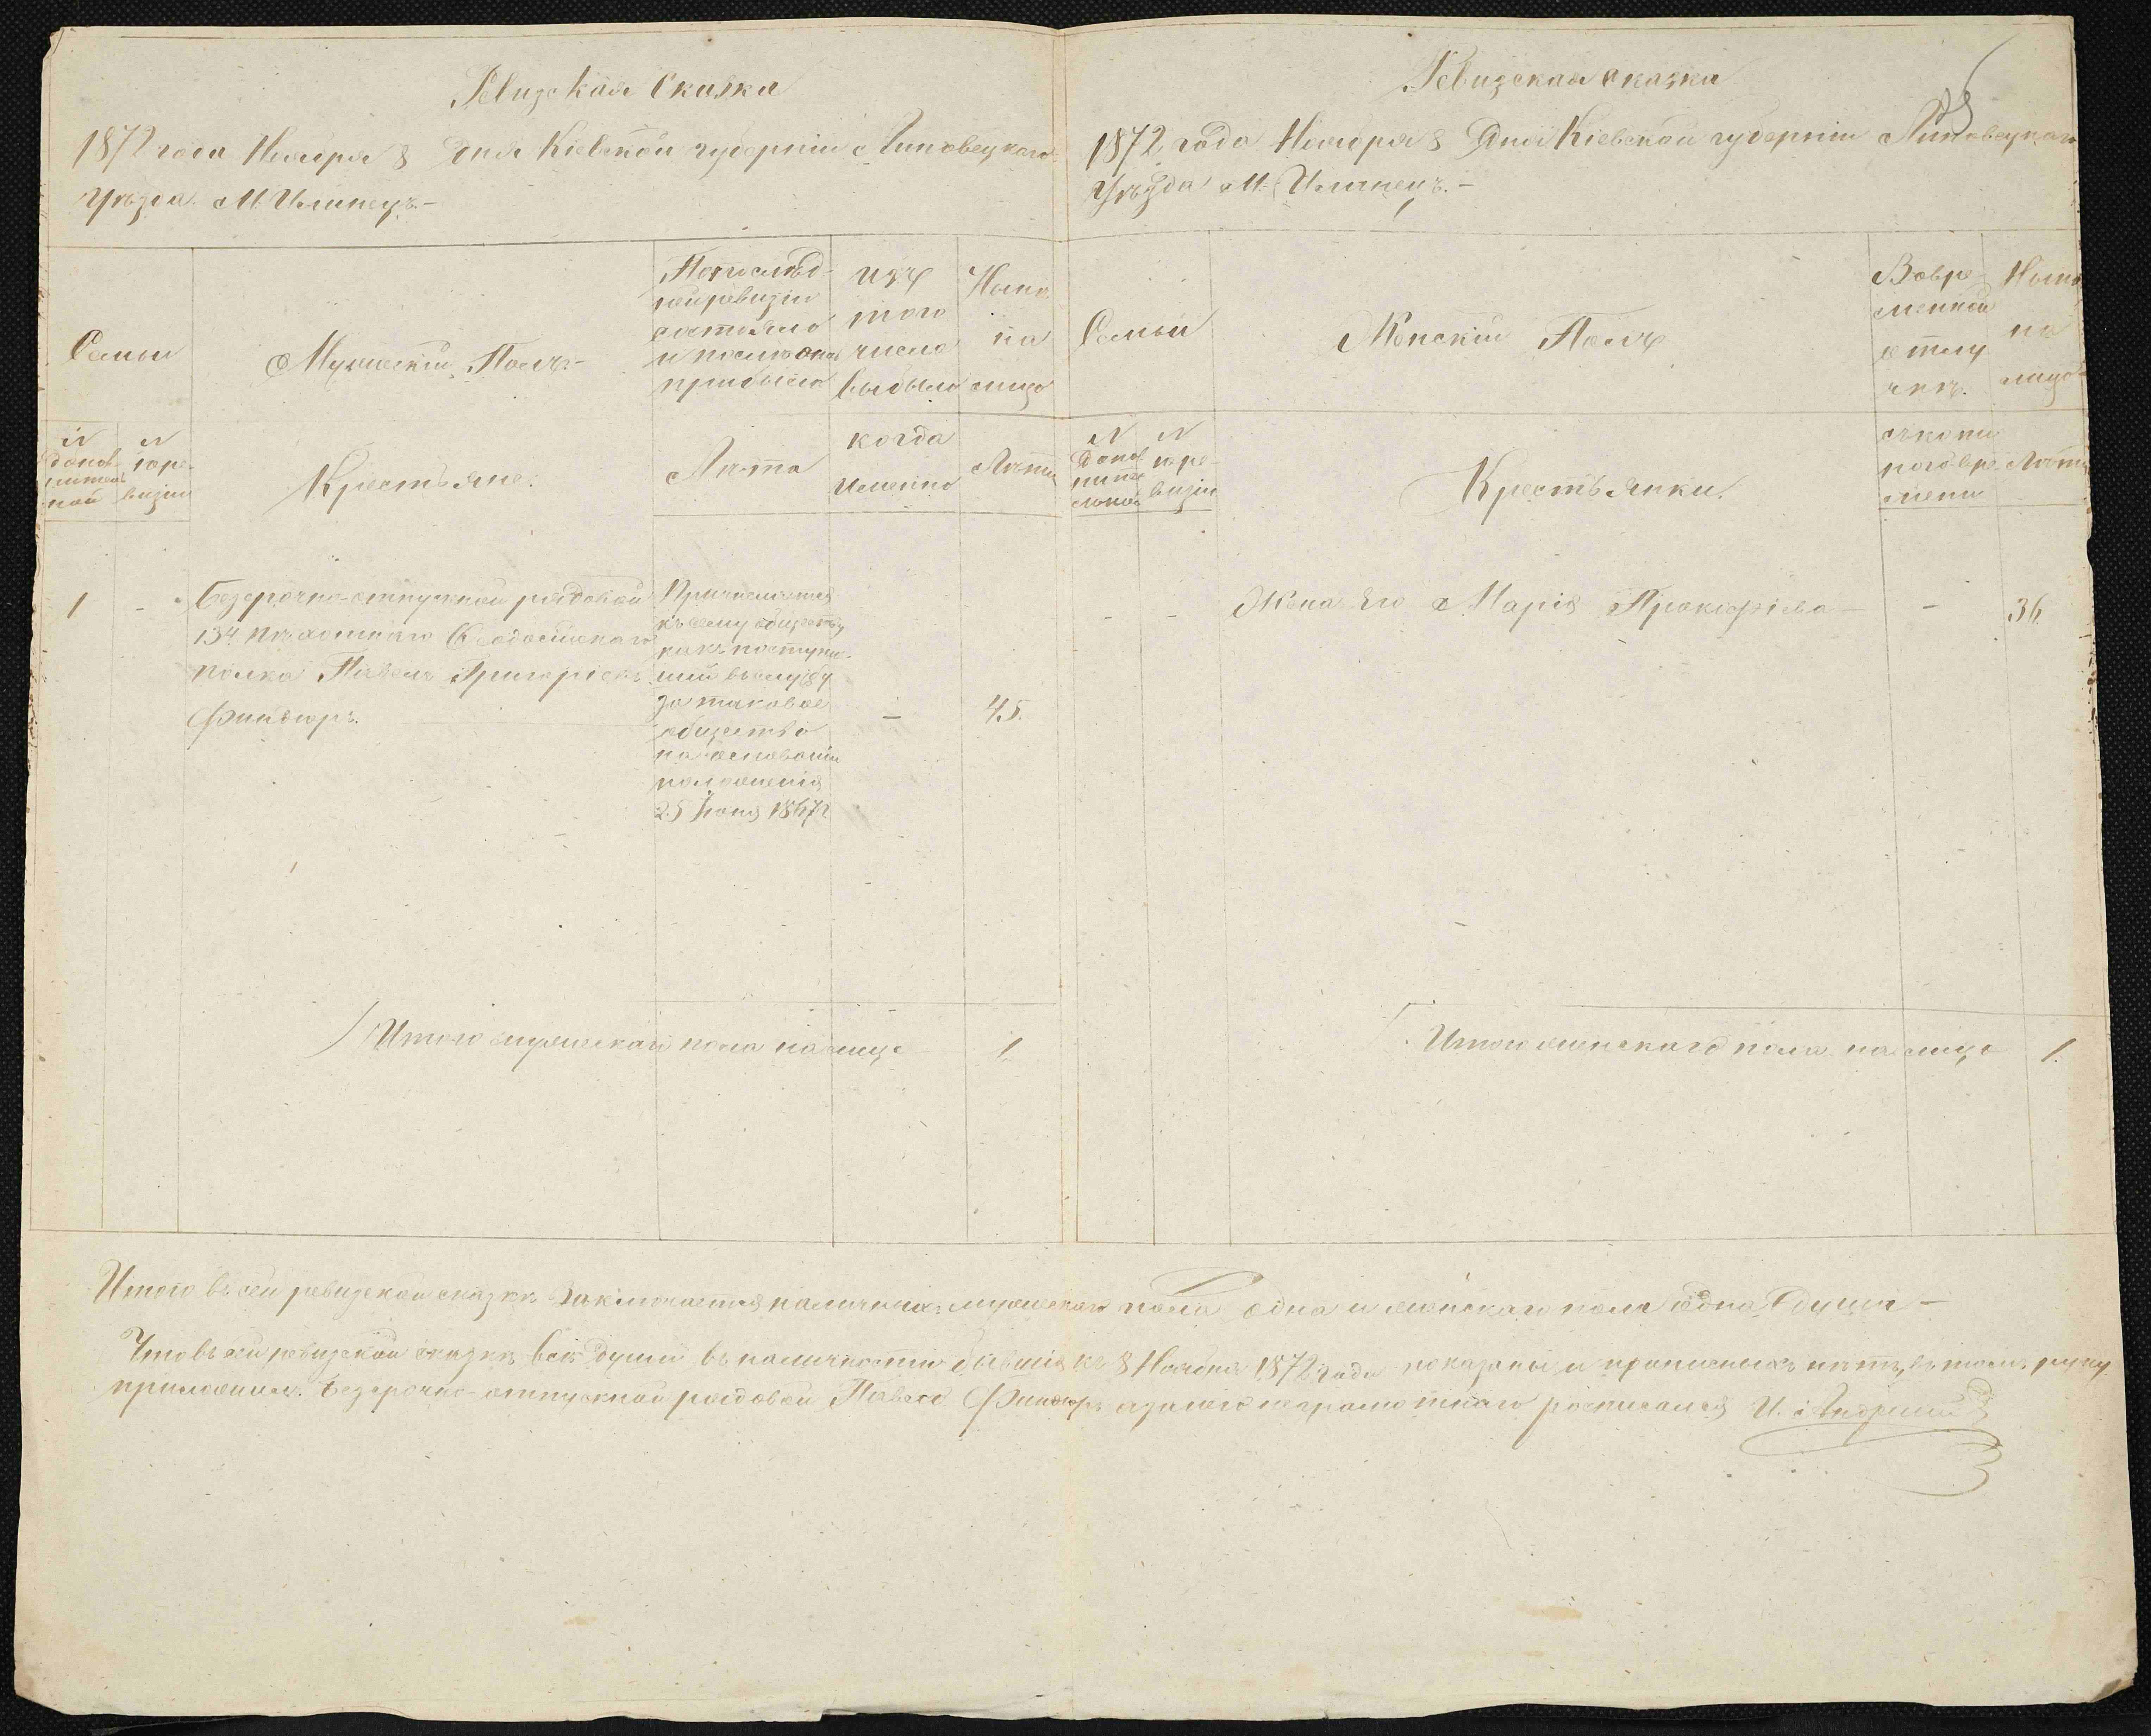 Ревизская Сказка
1872 года Ноября 8 дня Кіевской губерніи Липовецкого
Уѣзда М. Илинецъ.-
Семьи
Мужескій Полъ-
По послѣд-
ней ревизіи
состояло
и послѣ оной
прибыло
изъ
того
числа
выбыло
Нынѣ
на
лицо
N
допол-
нитель
ной
N
10 ре-
визіи
Крестьяне.
Лѣта
когда
именно
Лѣта
1 -
Безсрочно-отпускной рядовой
134 пѣхотнаго Ѳеодосійскаго
полка Павелъ Григоріевъ
Финдюръ.
Причисляется
къ сему обществу
какъ поступив-
шій въ службу
за таковое
общество
на основаніи
положенія
25 Іюня 1867 г
- 45.
Итого мужескаго пола на лицо 1
Ревизская сказка
1872 года Ноября 8 Дня Кіевской губерніи Липовецкаго
Уѣзда М. Илинецъ.-
Семьи
Женскій Полъ
Во вре-
менной
отлу
чкѣ.
Нынѣ
на
лицо
N
допол
ните
льной
N
10 ре-
визіи
Крестьянки.
съ кото
раго вре
мени
Лѣта
- - Жена его Марія Прокофіева - - 36
Итого женскаго пола на лицо 1.
Итого въ сей ревизской сказкѣ заключается наличныхъ: мужескаго пола одна и женскаго пола одна душа-
Что въ сей ревизской сказкѣ всѣ души въ наличности бывшія къ 8 Ноября 1872 года показаны и прописныхъ нѣтъ, въ томъ руку
приложилъ. Безсрочно-отпускной рядовой Павелъ Финдюръ а за него неграмотнаго росписался И.